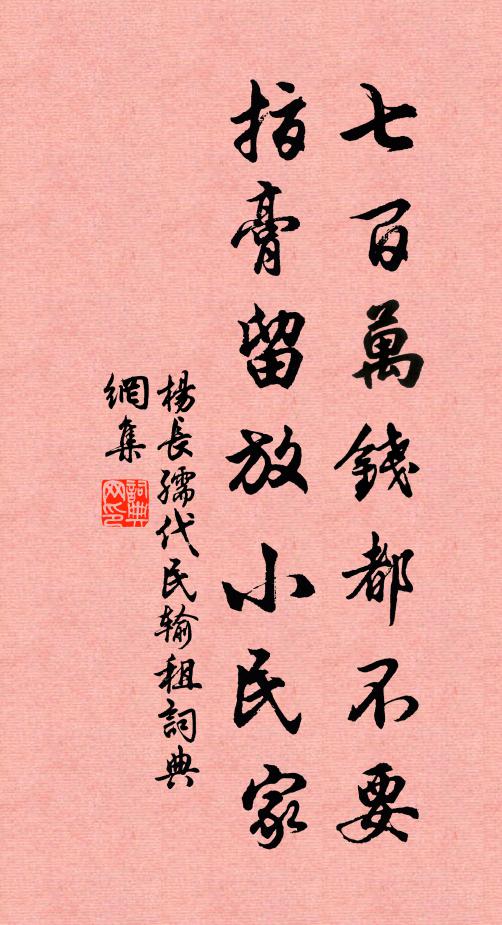 七百萬錢都不要
指膏留放小民家
楊長孺代民輸租詞典
網集
詞典
网印